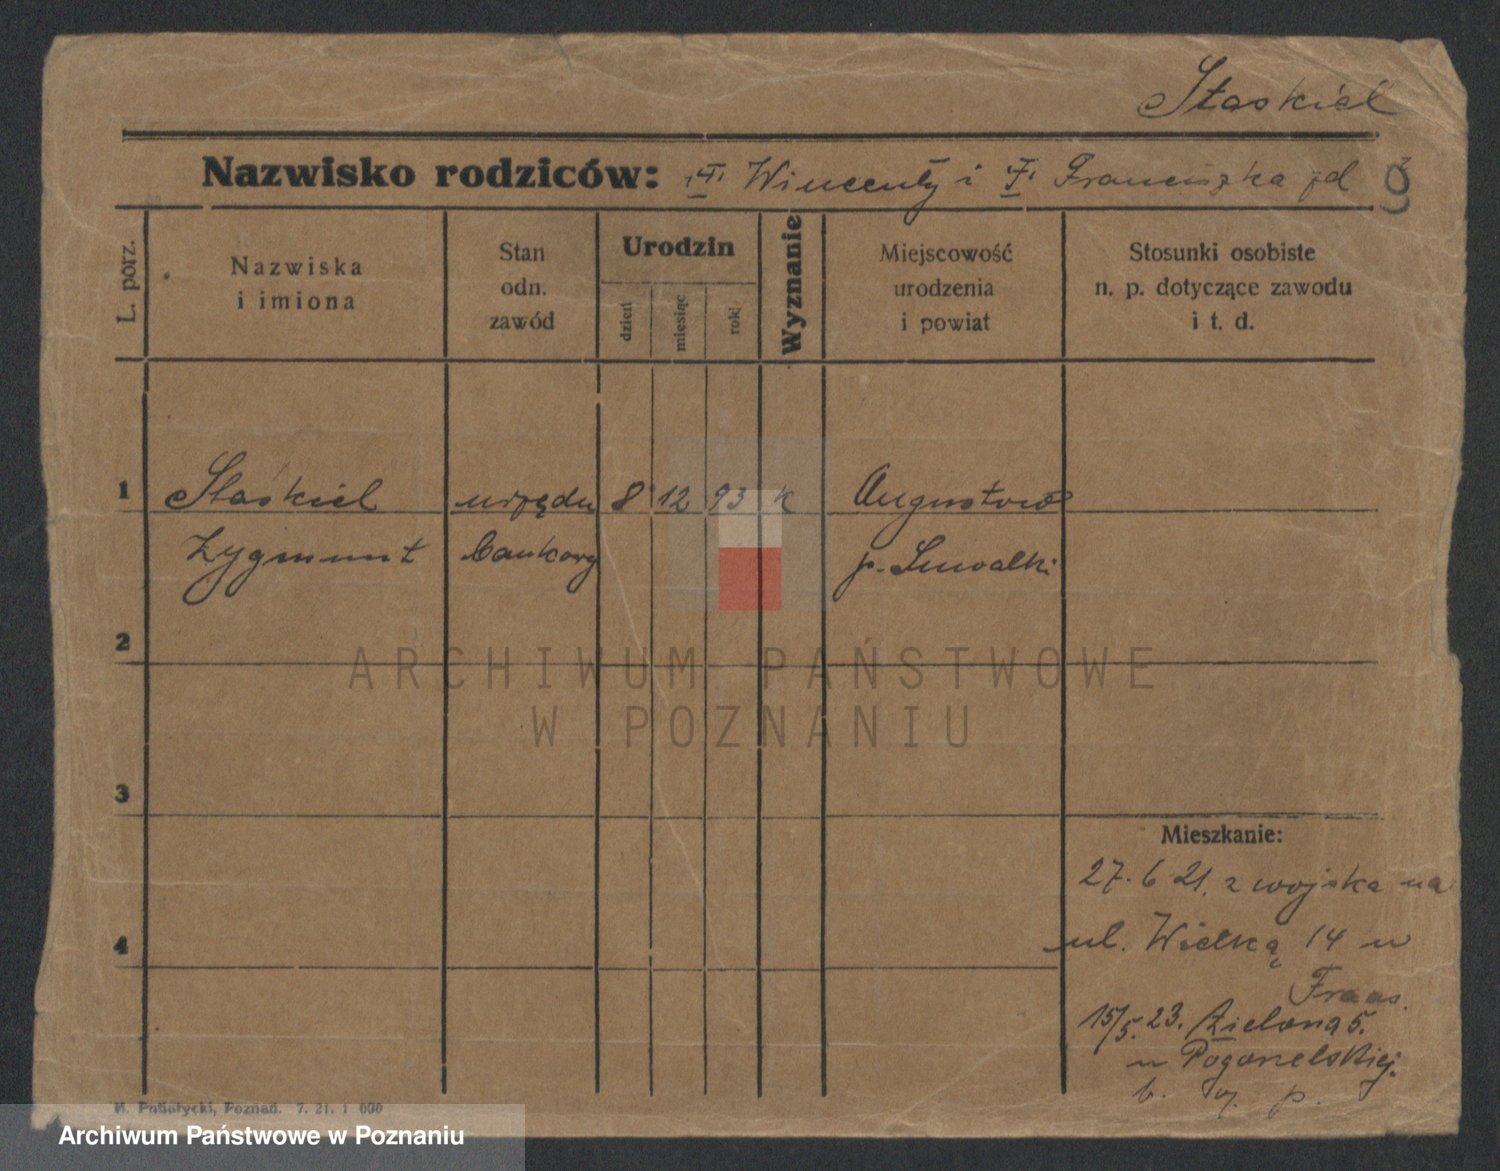 Staskiel
Nazwisko rodziców: Wincenty i Franciszka
L. porz.
Nazwiska
i imiona
Stan
odn.
zawód
Urodzin
dzień
miesiąc
rok
Wyznanie
Miejscowość
urodzenia
i powiat
Stosunki osobiste
n. p. dotyczące zawodu
i t. d.
1 Staskiel urzędn 8 12 93 k Augustow
Zygmunt bankowy p. Suwalki
2
ARCHIWUM PAŃSTWOWE
W POZNANIU
3
Mieszkanie:
27. 6 21. z wojska na
4
ul. Wielką 14 u
Fraas.
15/5. 23. Zielona 5.
u Pogonelskiej.
Poznań. 7. 21. 1 000
Archiwum Państwowe w Poznaniu